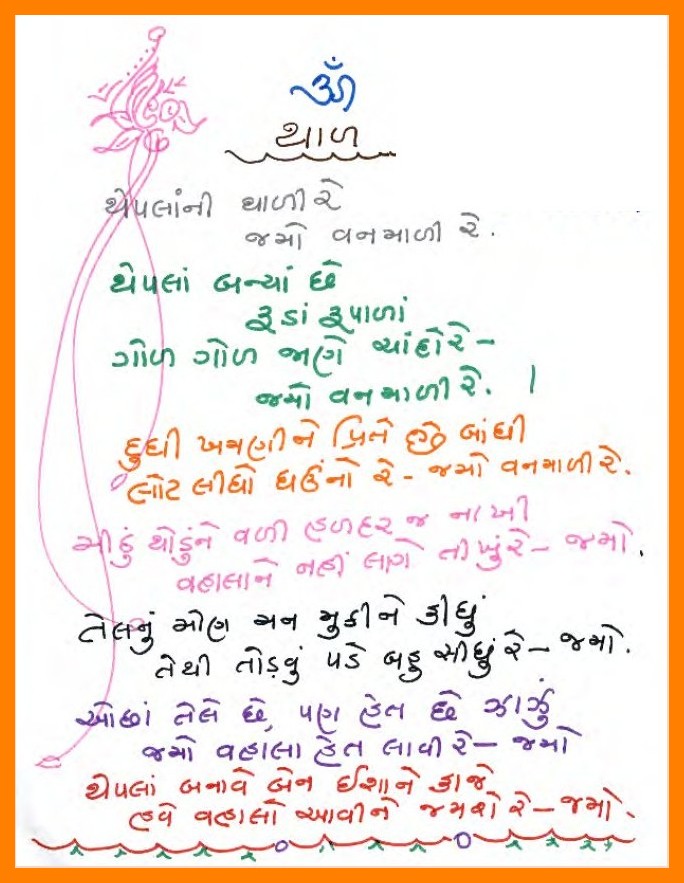 ૐ
થાળ
થેપલાંની થાળી રે
જમો વનમાળી રે.
થેપલાં બન્યાં છે
રૂડાં રૂપાળાં
ગોળ ગોળ જાણે ચાંદો રે –
જમો વનમાળી રે. ।
દુધી ખમણીને પ્રિતે છે બાંધી
લોટ લીધો ઘઉંનો રે – જમો વનમાળી રે.
મીઠું થોડુંને વળી હળદર જ નાખી
વહાલાને નહીં લાગે તીખું રે – જમો.
તેલનું મોણ મન મુકીને કીધું
તેથી તોડવું પડે બહુ સીધું રે – જમો.
ઓછાં તેલે છે, પણ હેત છે ઝાઝું
જમો વહાલા હેત લાવી રે – જમો
થેપલાં બનાવે બેન ઈશાને કાજે
હવે વહાલો આવીને જમશે રે – જમો.